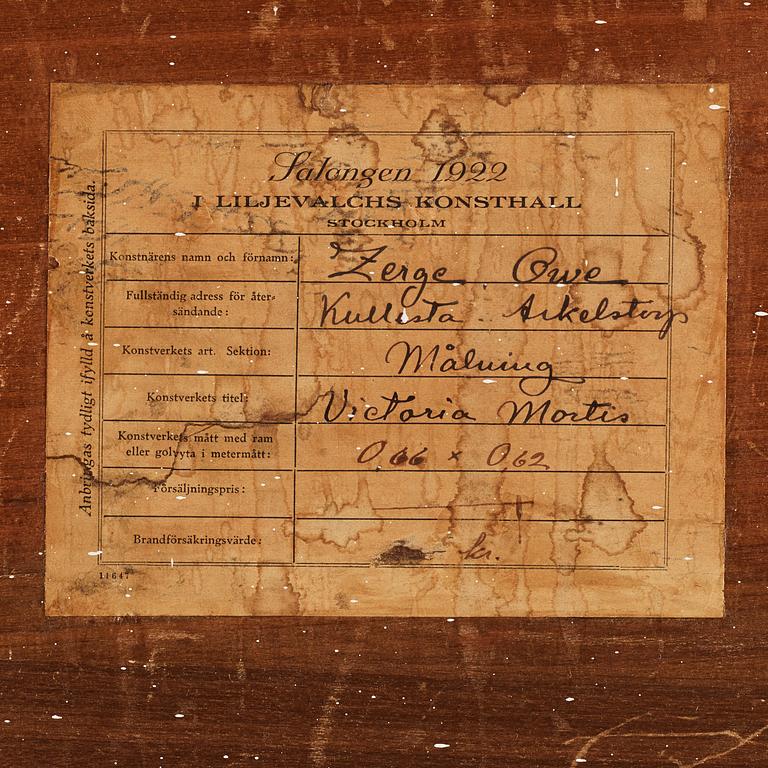 Salongen 1922
I LILJEVALCHS KONSTHALL
STOCKHOLM
Konstnärens namn och förnamn: Zerge. Owe
Fullständig adress för åter-
sändande: Kullesta. Arkelstorp
Konstverkets art. Sektion: Målning
Konstverkets titel: Victoria Mortis
Konstverkets mått med ram
eller golvyta i metermått: 0,66 x 0,62
Försäljningspris:
Brandförsäkringsvärde: kr.
11647
Anbringas tydligt ifylld å konstverkets baksida.